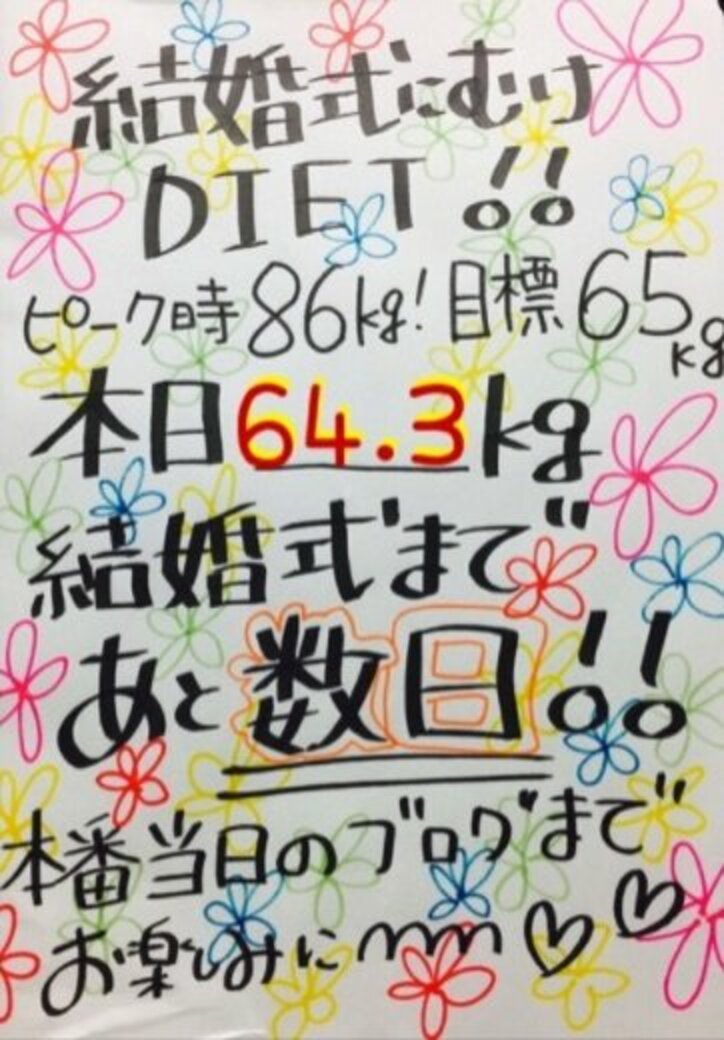 結婚式にむけ
DIET!!
ピーク時86kg!目標65kg
本日64.3kg
結婚式まで
あと数日!!
本番当日のブログまで
お楽しみに♡♡